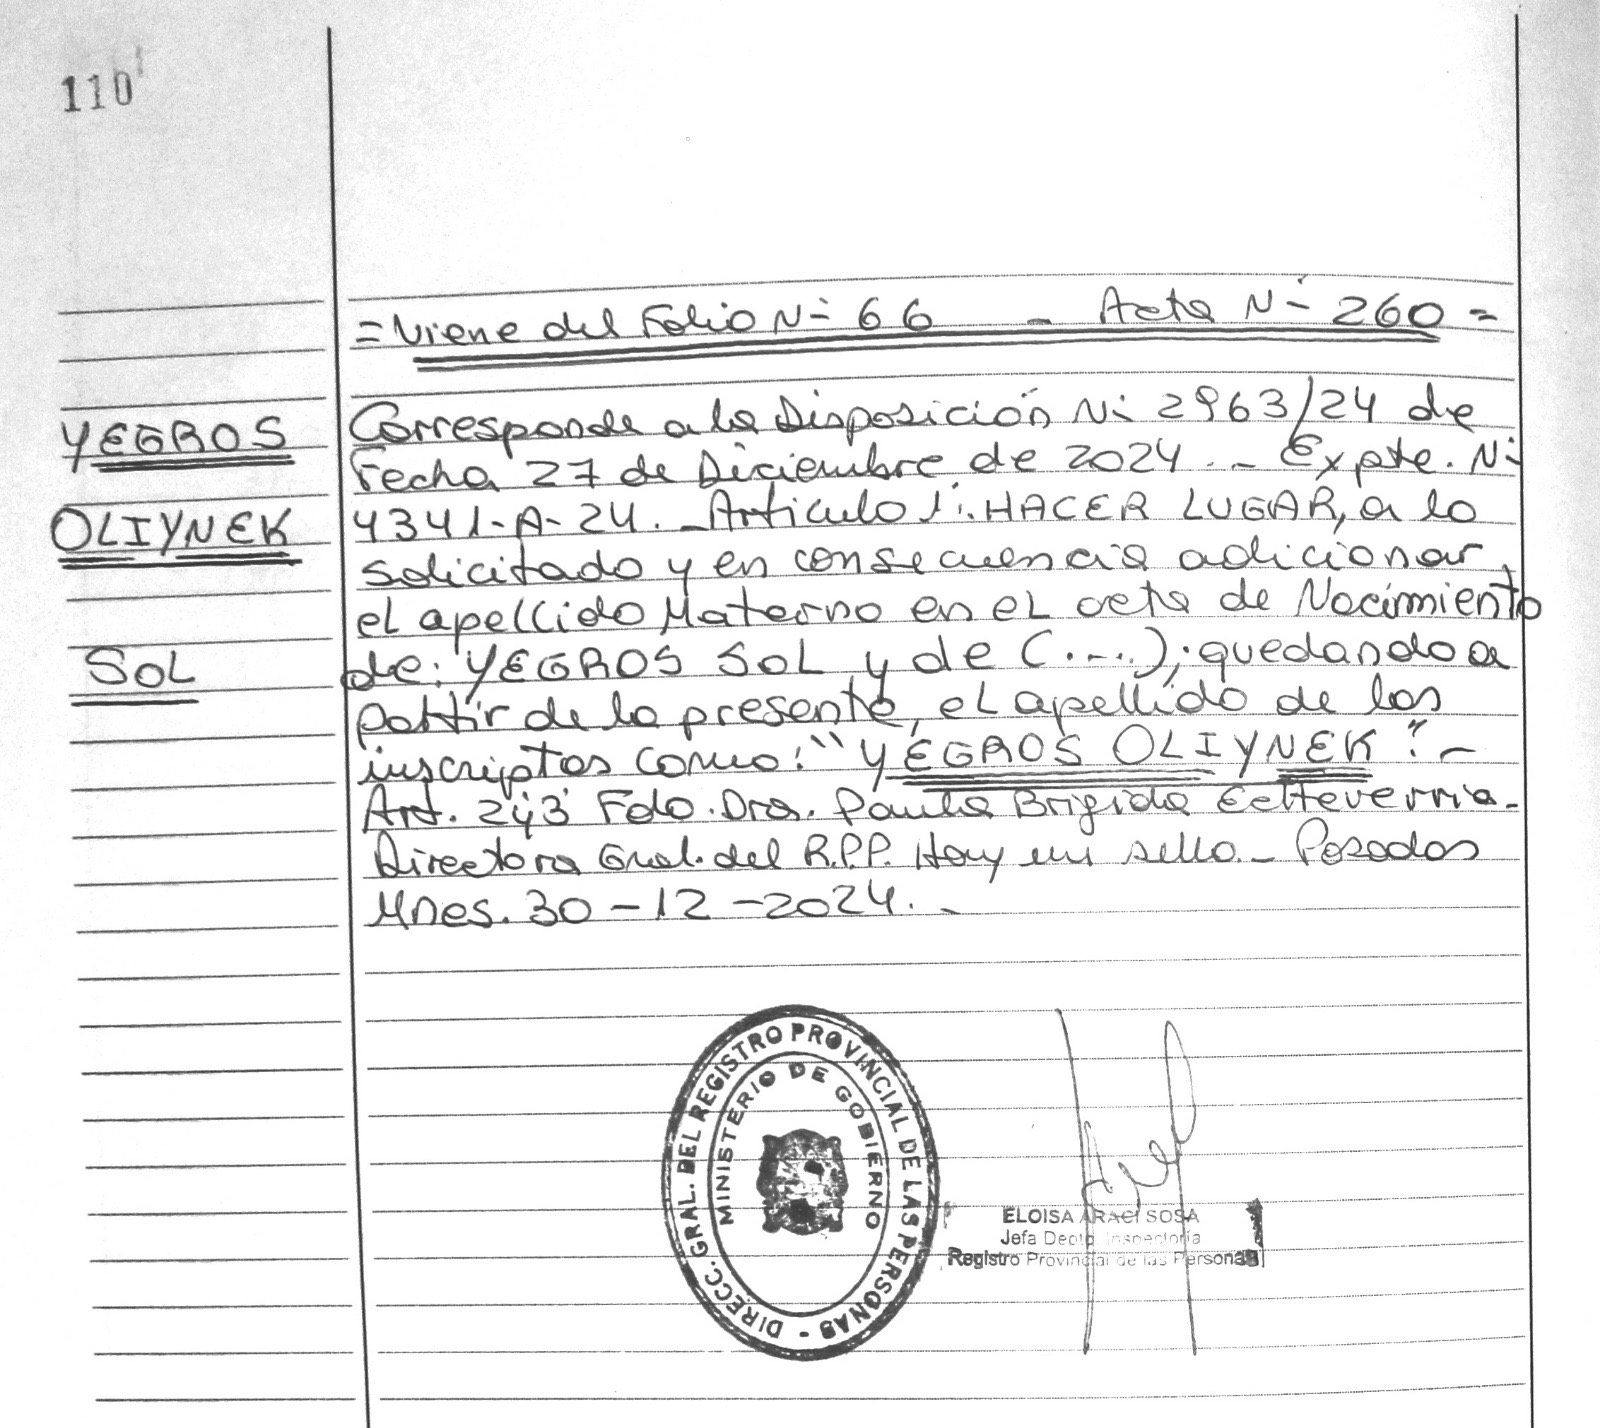 110
= Viene del Folio Nº 66 - Acta Nº 260 =
YEGROS
OLIYNEK
SOL
Corresponde a la Disposición Nº 2963/24 de
Fecha 27 de Diciembre de 2024. - Expte. Nº
4341-A-24. - Artículo 1º: HACER LUGAR, a lo
solicitado y en consecuencia adicionar,
el apellido Materno en el acta de Nacimiento
de: YEGROS SOL y de (....); quedando a
partir de la presente, el apellido de los
inscriptos como: "YEGROS OLIYNEK". -
Art. 2ý3 Fdo. Dra. Paula Brigida Echeverria.
Directora Gral. del R.P.P. Hay un sello. - Posadas
Mnes. 30-12-2024. -
DIRECC. GRAL. DEL REGISTRO PROVINCIAL DE LAS PERSONAS -
MINISTERIO DE GOBIERNO
ELOISA ARACI SOSA
Jefa Depto. Inspectoría
Registro Provincial de las Personas